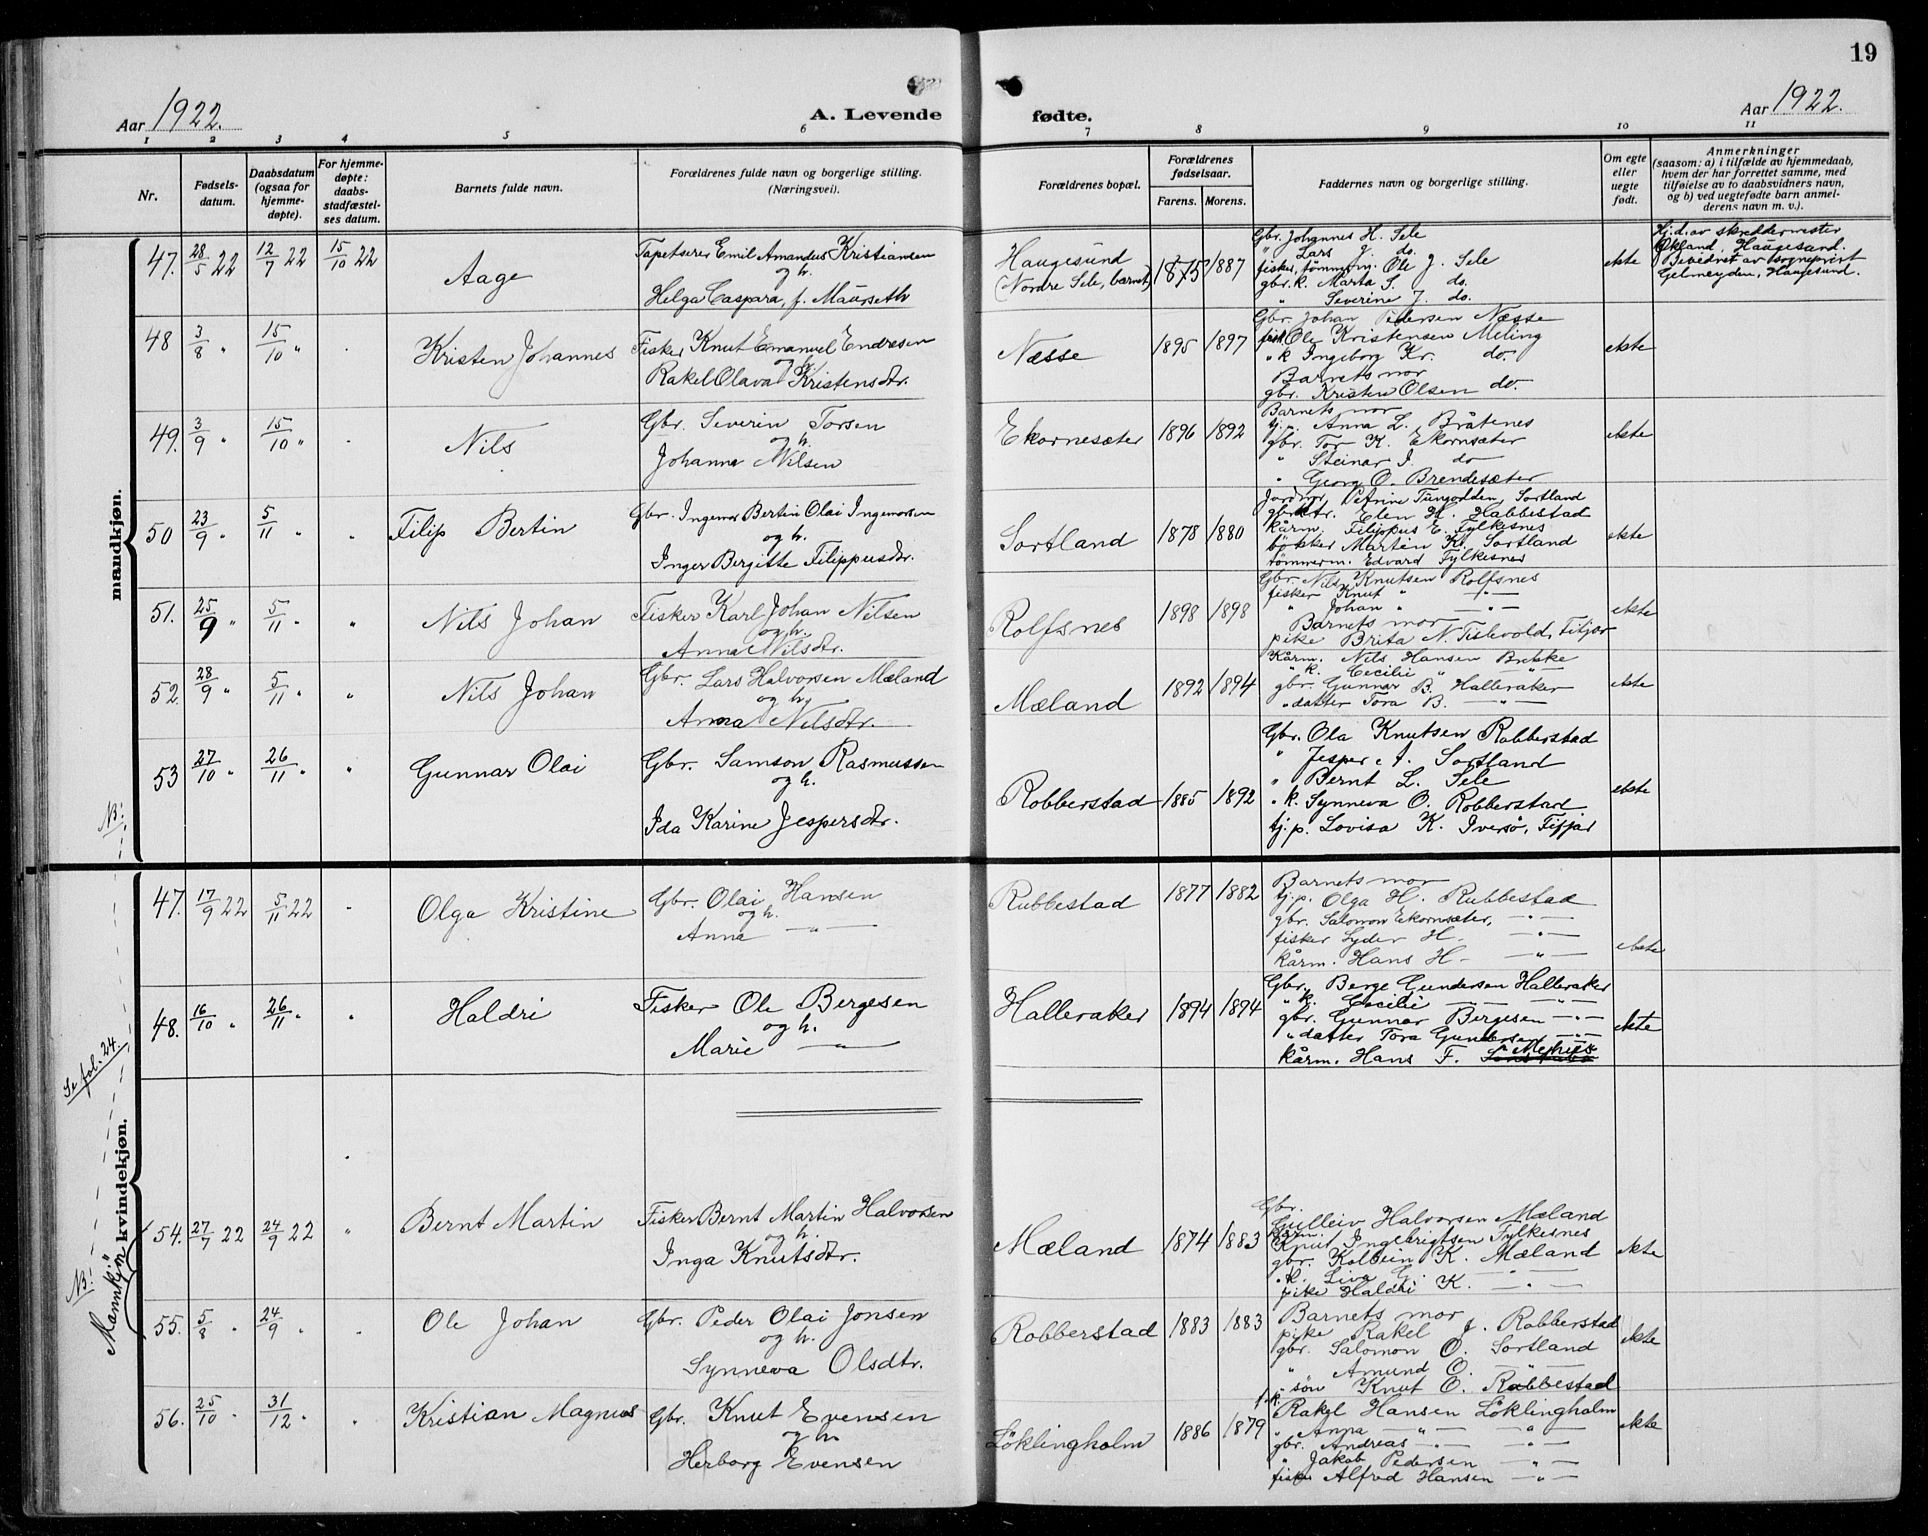 19
Aar 1922.
A. Levende fødte.
Aar 1922.
1 2 3 4 5 6 7 8 9 10 11
Nr.
Fødsels-
datum.
Daabsdatum
(ogsaa for
hjemme-
døpte).
For hjemme-
døpte:
daabs-
stadfæstel-
ses datum.
Barnets fulde navn.
Forældrenes fulde navn og borgerlige stilling.
(Næringsvei).
Forældrenes bopæl.
Forældrenes
fødselsaar.
Farens. Morens.
Faddernes navn og borgerlige stilling.
Om egte
eller
uegte
født.
Anmerkninger
(saasom: a) i tilfælde av hjemmedaab,
hvem der har forrettet samme, med
tilføielse av to daabsvidners navn,
og b) ved uegtefødte barn anmel-
derens navn m. v.).
mandkjøn.
47. 28/5 22 12/7 22 15/10 22
Aage
Tapetserer Emil Amandus Kristiansen
og h.
Helga Caspara, f. Maurseth
Haugesund
(Nordre Sele, barnet)
1875 1887
Gbr. Johannes H. Sele
" Lars J. do.
fisker, tømmerm. Ole J. Sele
gbr. k. Marta S. do.
" Severine J. do.
ekte
Hj.d. av skreddermester
Økland, Haugesund.
Bevidnet av sogneprest
Gelmeyden, Haugesund.
48 3/8 " 15/10 "
Kristen Johannes
Fisker Knut Emanuel Endresen
og h.
Rakel Olava Kristensdtr.
Næsse
1895 1897
Gbr. Johan Pedersen Næsse
fisk. Ole Kristensen Meling
" k Ingeborg Kr. do.
Barnets mor
gbr. Kristen Olsen do.
ekte
49. 3/9 " 15/10 "
Nils
Gbr. Severin Torsen
og h.
Johanna Nilsen
Ekornesæter
1896 1892
Barnets mor
Anna L. Bråtenes
gbr. Tor K. Ekornsæter
" Steinar I. do
" Georg O. Brendesæter
ekte
50 23/9 " 5/11 " "
Filip Bertin
Gbr. Ingemor Bertin Olai Ingemorsen
og h.
Inger Bergitte Filippusdtr.
Sortland
1878 1880
Jordmor Petrine Tungodden, Sortland
gbrdtr. Elen H. Habbestad
kårm. Filippus E. Fylkesnes
bøkker Martin K. Sortland
tømmerm. Edvard Fylkesnes
ekte
51. 25/9 " 5/11 " "
Nils Johan
Fisker Karl Johan Nilsen
og h.
Anna Nilsdtr.
Rolfsnes
1898 1898
Gbr. Nils Knutsen Rolfsnes
fisker Knut " — " —
" Johan " — " —
Barnets mor
pike Brita N. Tislevold, Fitjar
ekte
52. 28/9 " 5/11 " "
Nils Johan
Gbr. Lars Halvorsen Mæland
og h.
Anna Nilsdtr.
Mæland
1892 1894
Kårm. Nils Hansen Brekke
" k. Cecilie " — " —
gbr. Gunnar B. Halleraker
" datter Tora B. — " —
ekte
53 27/10 " 26/11 " "
Gunnar Olai
Gbr. Samson Rasmussen
og h.
Ida Karine Jespersdtr.
Robberstad
1885 1892
Gbr. Ola Knutsen Robberstad
" Jesper J. Sortland
" Bernt L. Sele
" k. Synneva O. Robberstad
tj.p. Lovisa K. Iversö, Fitjar
ekte
NB:
Se fol. 24.
kvindekjøn.
47. 17/9 22 5/11 22 "
Olga Kristine
Gbr. Olai Hansen
og h.
Anna — " —
Rubbestad
1877 1882
Barnets mor
tj.p. Olga H. Rubbestad
gbr. Salomon Ekornsæter, — " —
fisker Lyder H. — " —
kårm. Hans H. — " —
ekte
48. 16/10 " 26/11 " "
Haldri
Fisker Ole Bergesen
og h.
Marie — " —
Halleraker
1894 1894
Gbr. Berge Gundersen Halleraker
" k. Cecilie — " —
gbr. Gunnar Bergesen — " —
" datter Tora Gundersen — " —
kårm. Hans F.
ekte
NB:
Mannkjön
54. 27/7 22 24/9 22 "
Bernt Martin
Fisker Bernt Martin Halvorsen
og h.
Inga Knutsdtr.
Mæland
1874 1883
Gbr.
Gulleiv Halvorsen Mæland
kårm.
Knut Ingebrigtsen Fylkesnes
gbr. Kolbein K. Mæland
" k. Liva G. — " —
pike Haldri K. — " —
ekte
55. 5/8 " 24/9 " "
Ole Johan
Gbr. Peder Olai Jonsen
og h.
Synneva Olsdtr.
Robberstad
1883 1883
Barnets mor
pike Rakel J. Robberstad
gbr. Salomon O. Sortland
" Amund O. — " —
" sön Knut O. Rubbestad
ekte
56. 25/10 " 31/12 " "
Kristian Magnus
Gbr. Knut Evensen
og h.
Herborg Evensen
Löklingholm
1886 1879
f.k.
Rakel Hansen Löklingholm
" Anna — " — — " —
gbr. Andreas — " — — " —
" Jakob Pedersen — " —
fisker Alfred Hansen — " —
ekte